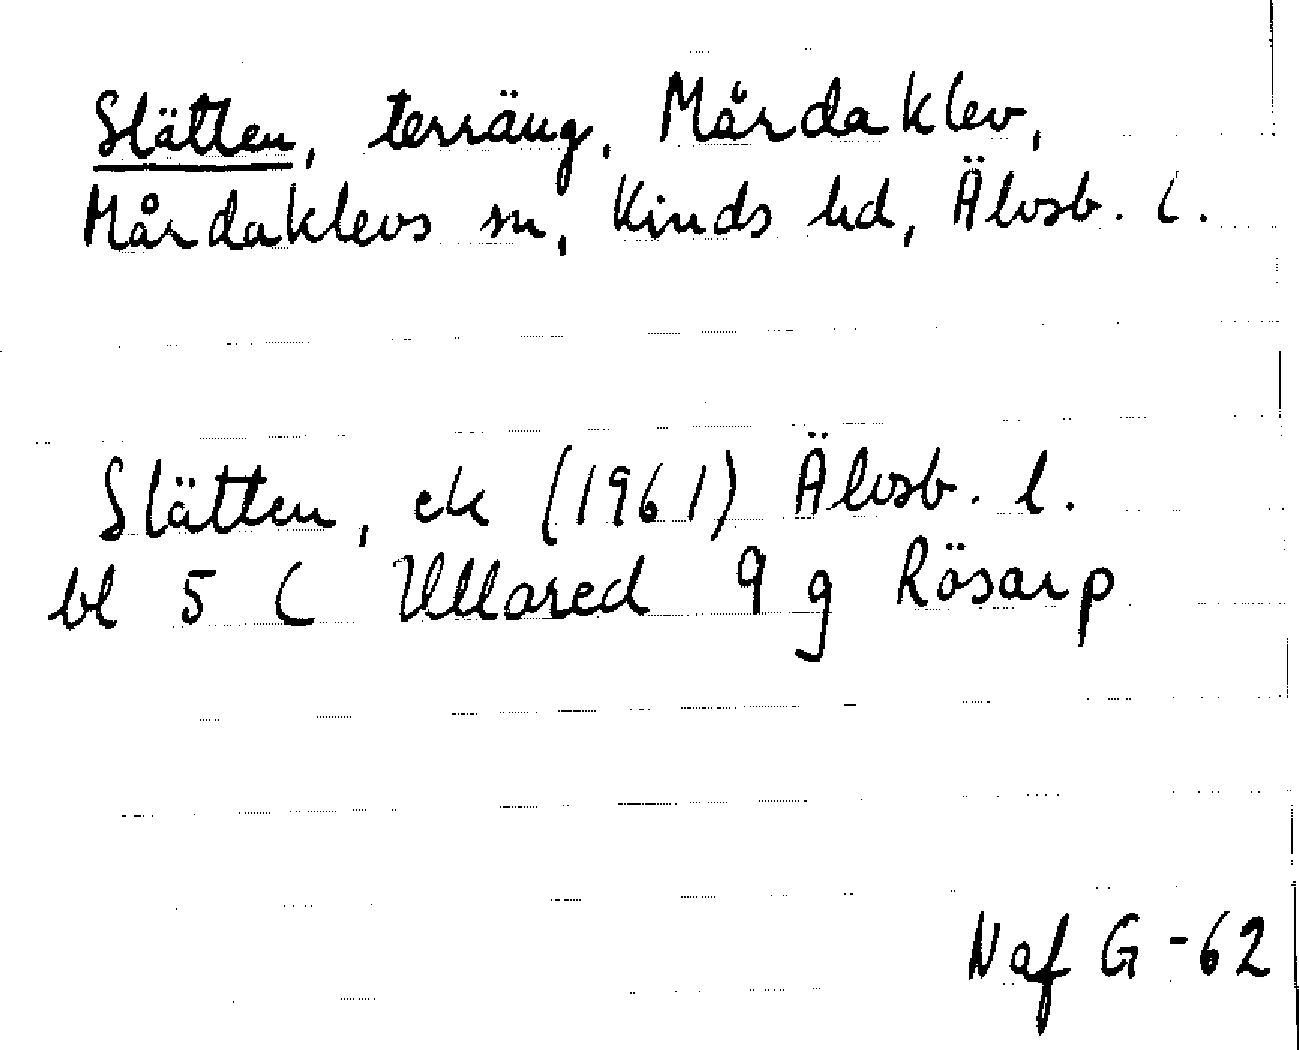 Slätten, terräng, Mårdaklev,
Mårdaklevs sn, Kinds hd, Älvsb. l.
Slätten, ek (1961) Älvsb. l.
bl 5 C Ullared 9 g Rösarp
Naf G -62